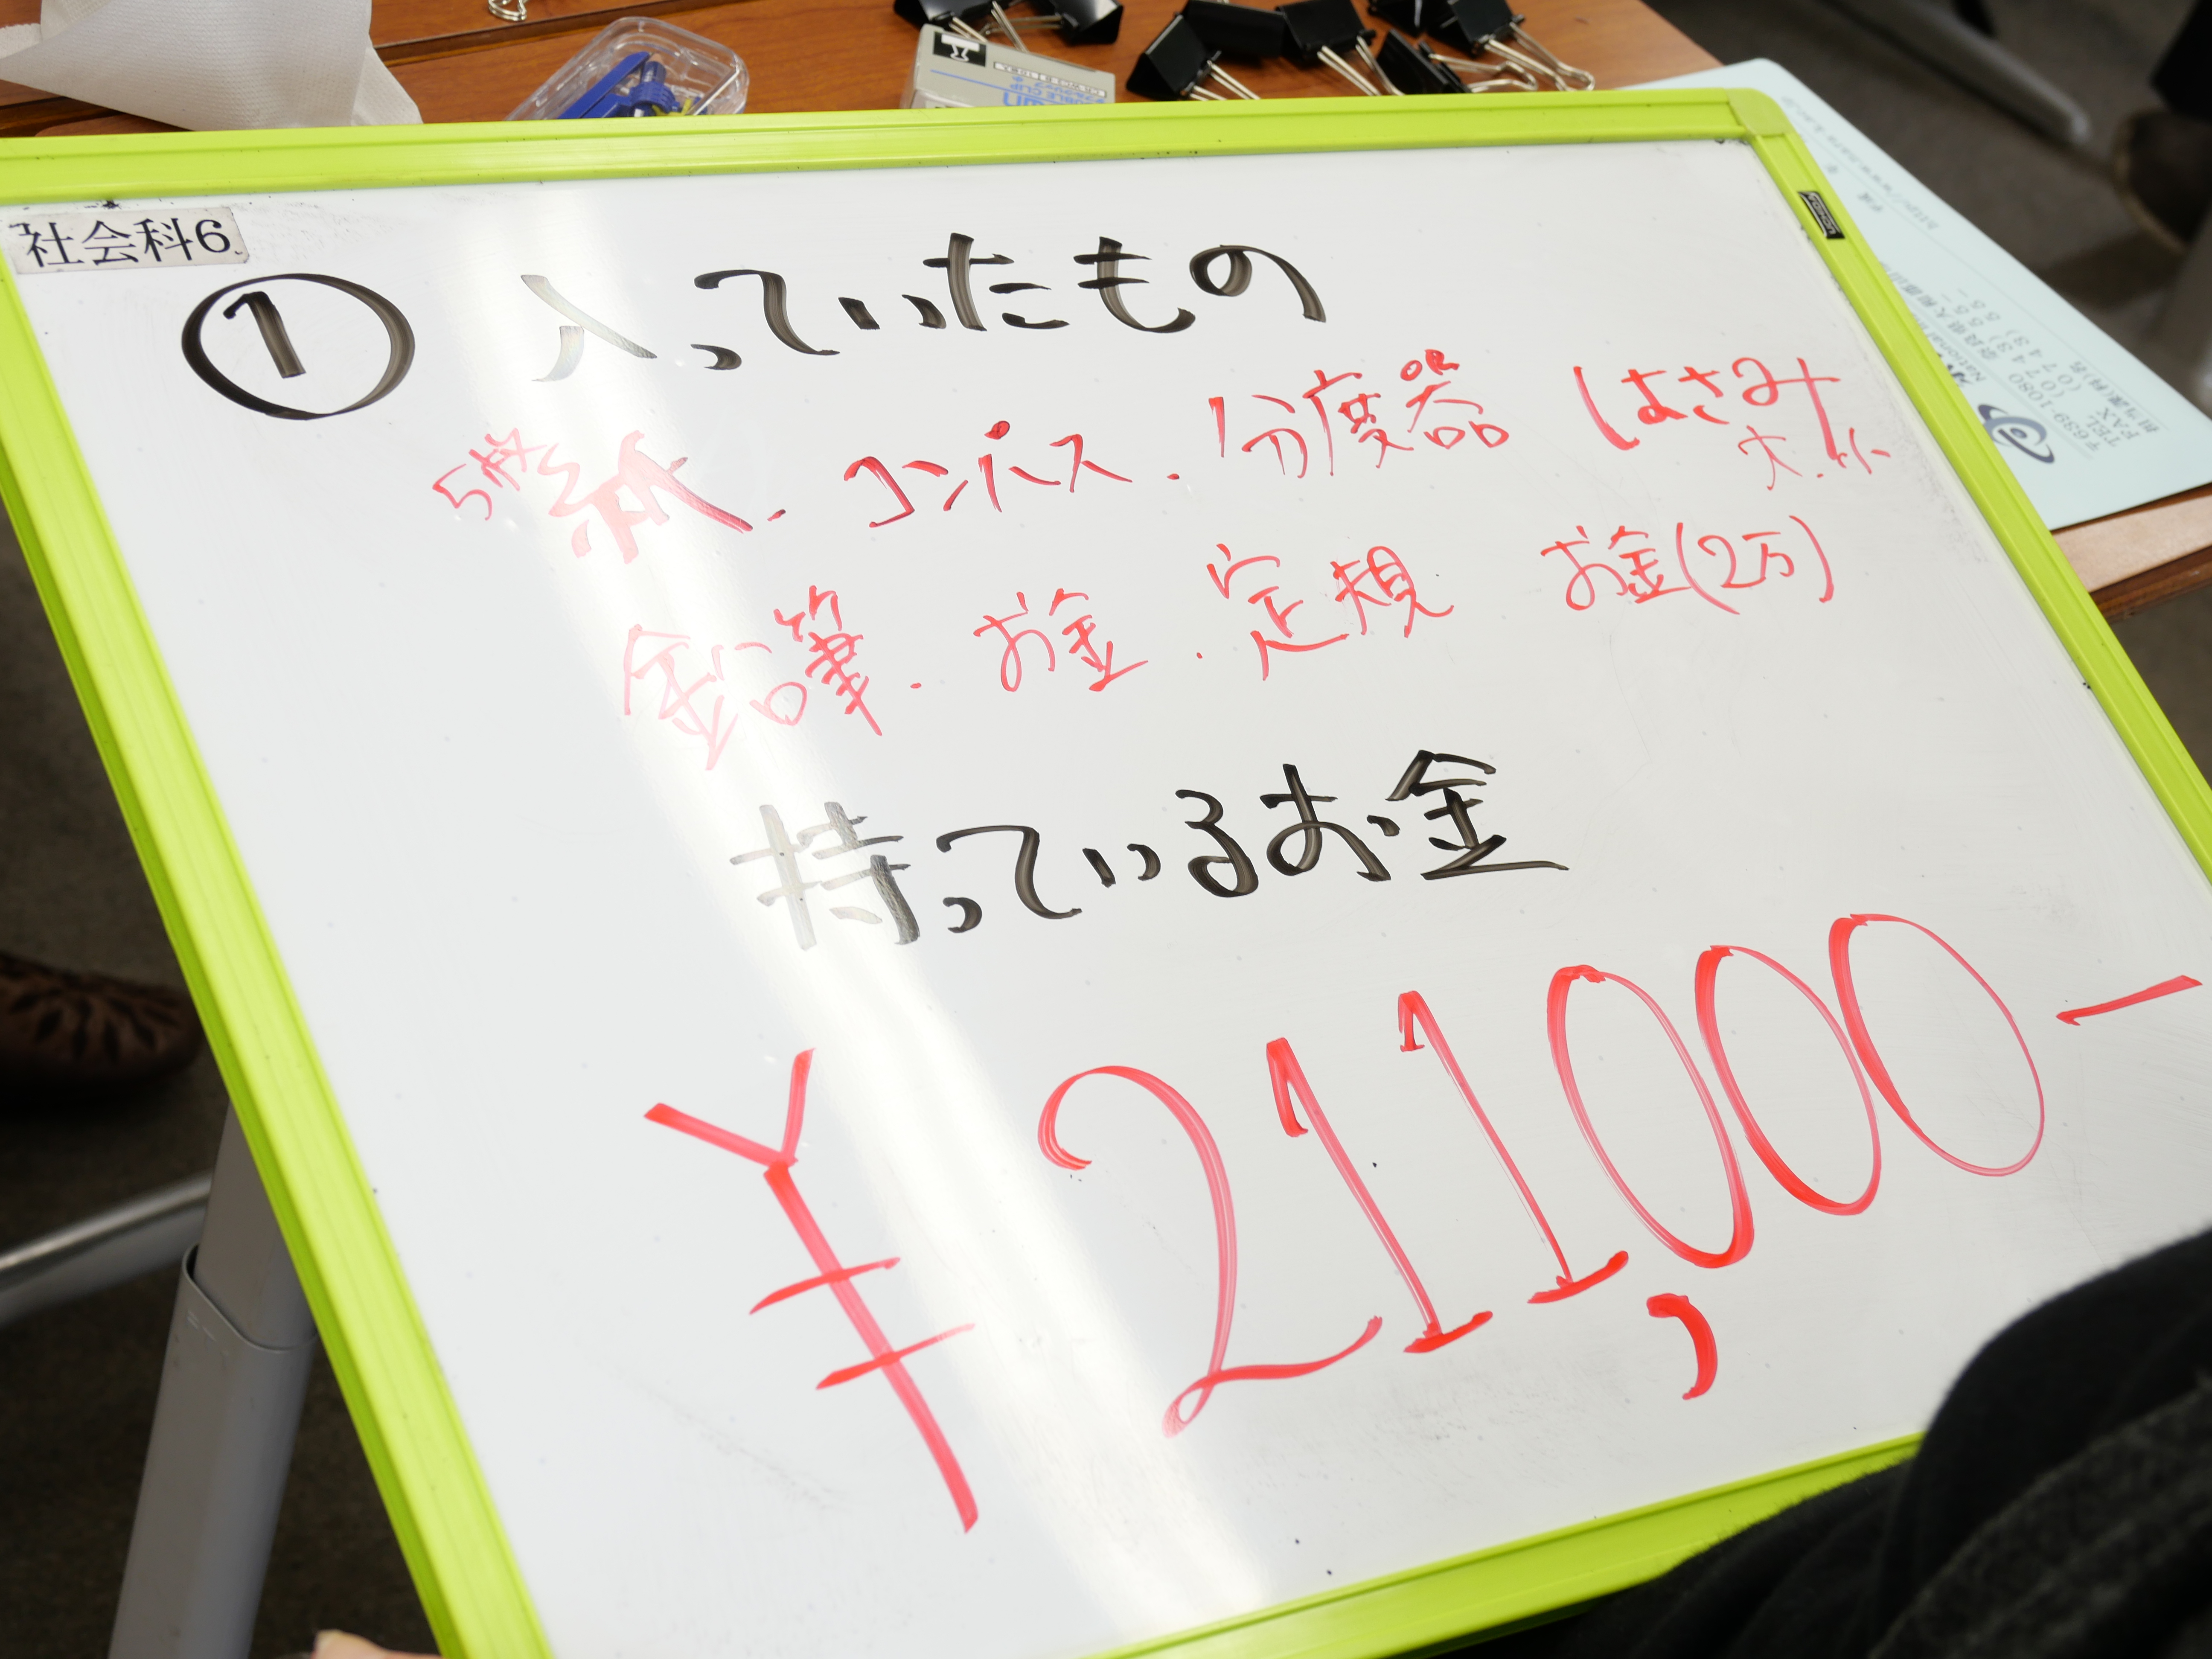 社会科6
① 入っていたもの
5枚 紙 . コンパス . 分度器 はさみ
大.小
鉛筆 . お金 . 定規 お金(2万)
持っているお金
¥211,000-